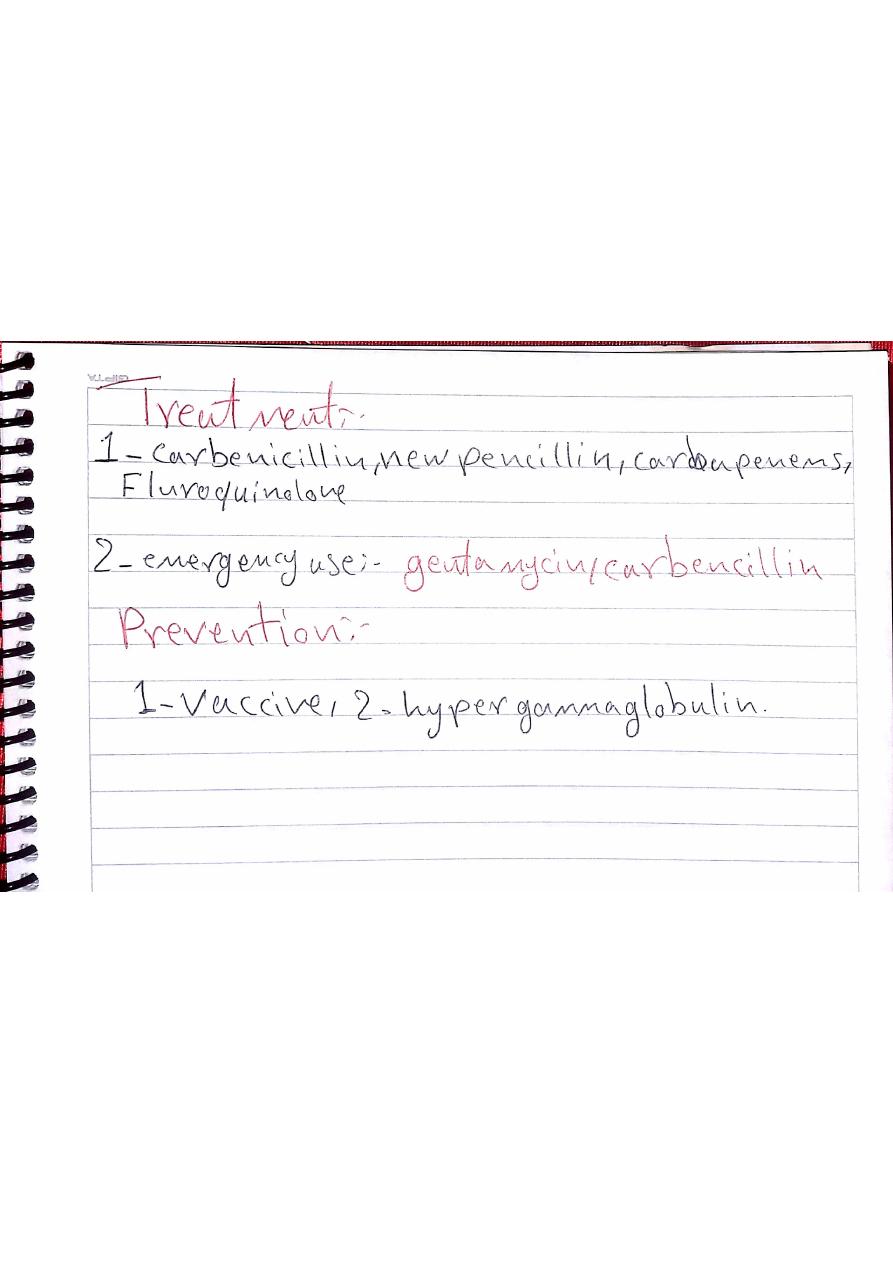 Treatment:-
1- carbenicillin, new pencillin, carbapenems,
Fluroquinolone
2- emergency use:- gentamycin, carbencillin
Prevention:-
1- Vaccine, 2- hyper gammaglobulin.